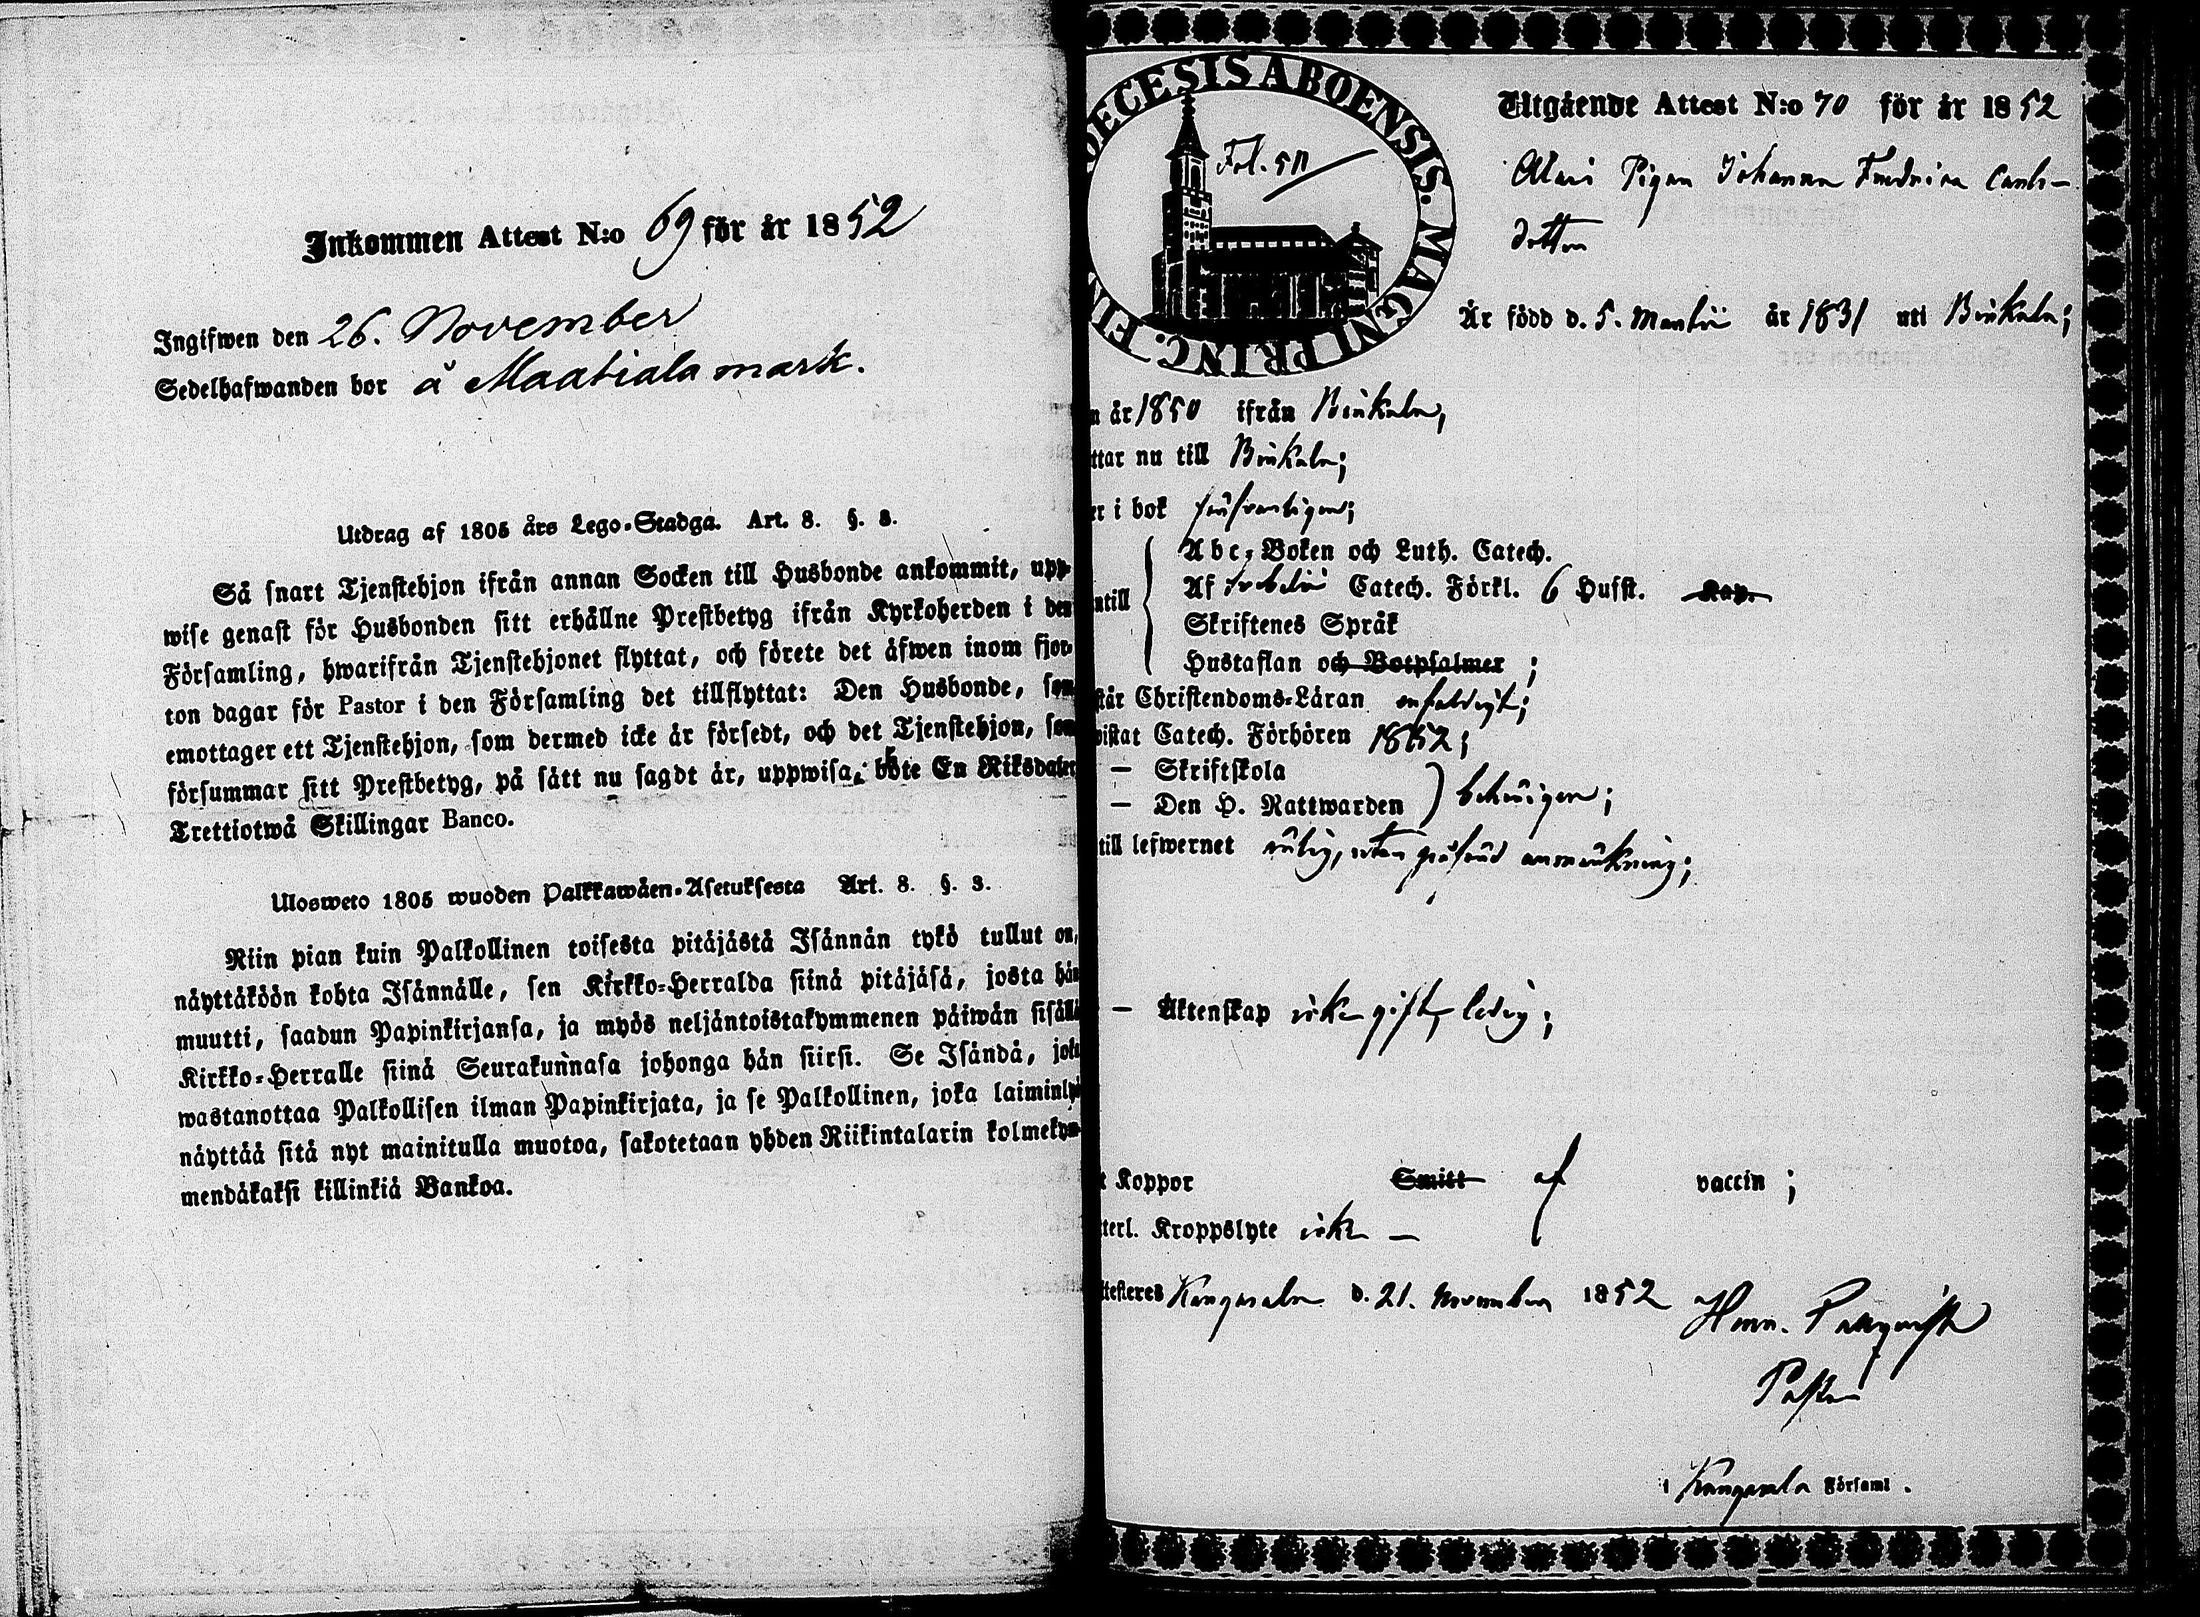 Inkommen Attest N:o 69 för år 1852
Ingifwen den 26. November
Sedelhafwanden bor å Maatiala mark.
Utdrag af 1805 års Lego-Stadga. Art. 8. §. 3.
Så snart Tjenstehjon ifrån annan Socken till Husbonde ankommit, upp-
wise genast för Husbonden sitt erhållne Prestbetyg ifrån Kyrkoherden i den
Församling, hwarifrån Tjenstehjonet flyttat, och förete det äfwen inom fjor-
ton dagar för Pastor i den Församling det tillflyttat: Den Husbonde, som
emottager ett Tjenstehjon, som dermed icke är försedt, och det Tjenstehjon, som
försummar sitt Prestbetyg, på sätt nu sagdt är, uppwisa, böte En Riksdaler
Trettiotwå Skillingar Banco.
Ulosweto 1805 wuoden Palkkawäen-Asetuksesta Art. 8. §. 3.
Niin pian kuin Palkollinen toisesta pitäjästä Isännän tykö tullut on,
näyttäköön kohta Isännälle, sen Kirkko-Herralda siinä pitäjäsä, josta hän
muutti, saadun Papinkirjansa, ja myös neljäntoistakymmenen päiwän sisällä
Kirkko-Herralle siinä Seurakunnasa johonga hän siirsi. Se Isändä, joka
wastanottaa Palkollisen ilman Papinkirjata, ja se Palkollinen, joka laiminlyö
näyttää sitä nyt mainitulla muotoa, sakotetaan yhden Riikintalarin kolmekym-
mendäkaksi killinkiä Bankoa.
DIOECESIS ABOENSIS. MAGNI PRINC. FIN
Fol. 511
Utgående Attest N:o 70 för år 1852
Pigan Johanna Fredrica Carls-
dotter
Är född d. 5. Martii år 1831 uti Birkala;
n år 1850 ifrån Birkala,
ttar nu till Birkala;
er i bok försvarligen;
Abc-Boken och Luth. Catech.
ntill Af Svebelii Catech. Förkl. 6 Hufst. Kap.
Skriftenes Språk
Hustaflan och Botpsalmer ;
står Christendoms-Läran enfaldigt;
wistat Catech. Förhören 1852;
— Skriftskola
— Den H. Nattwarden behörigen;
till lefwernet ärlig, utan påförd anmärkning;
— Äktenskap icke gift, ledig;
t Koppor Smitt af vaccin ;
tterl. Kroppslyte icke —
ttesteres Kangasala d. 21. November 1852
Herm. Palmquist
Pastor
i Kangasala Församl.